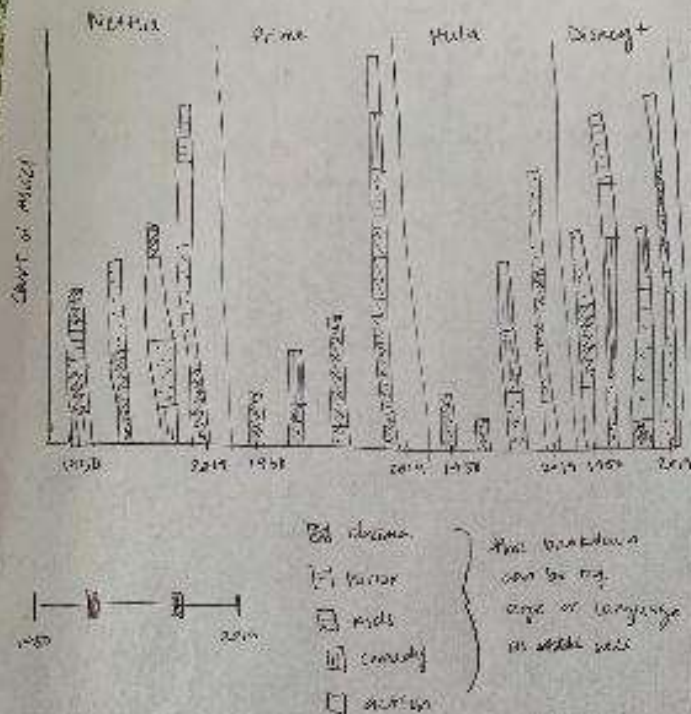 Netflix Prime Hulu Disney+
Count of movies
1950 2019 1950 2019 1950 2019 1950 2019
1950 2019
drama
horror
kids
comedy
action
this breakdown
can be by
age or language
as well